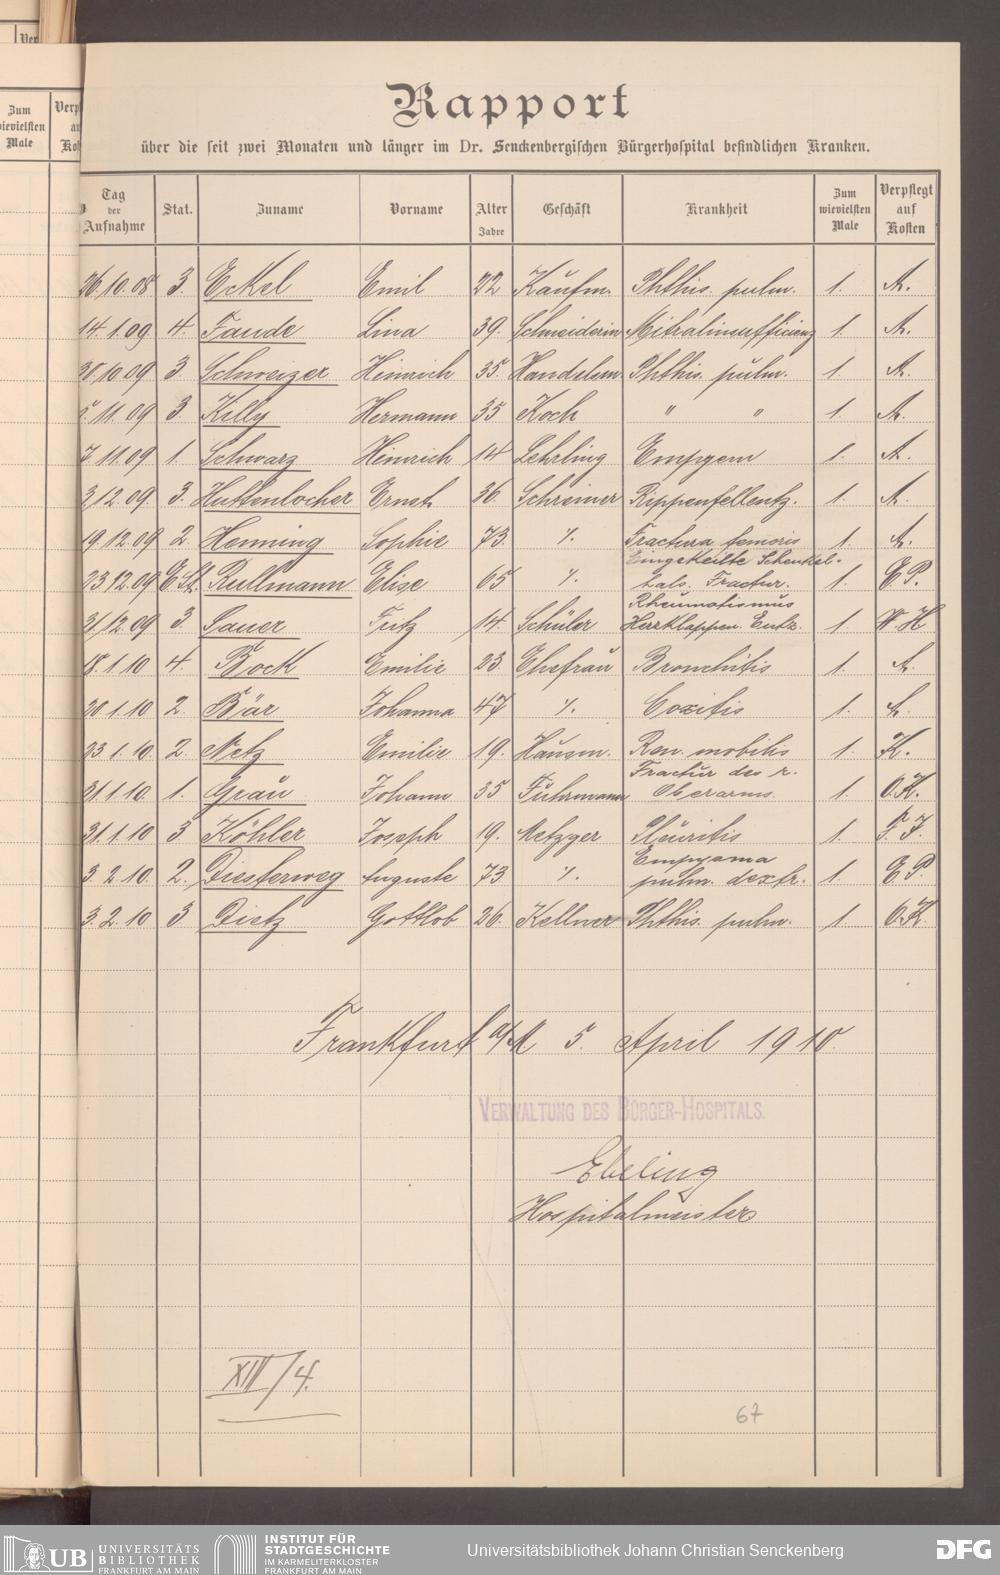 Rapport
über die seit zwei Monaten und länger im Dr. Senckenbergischen Bürgerhospital befindlichen Kranken.
Tag der Aufnahme Stat. Zuname Vorname Alter Jahre Geschäft Krankheit Zum wievielsten Male Verpflegt auf Kosten
26.10.08 3. Eckel Emil 22 Kaufm. Phthis. pulm. 1. A.
14.1.09. 4. Faude Lina 39. Schneiderin Mitralinsufficienz 1. A.
30.10.09 3. Schweizer Heinrich 35. Handelsm. Phthis. pulm. 1. A.
5.11.09 3 Killy Hermann 35 Koch " " 1. A.
7.11.09 1. Schwarz Heinrich 14 Lehrling Empyem 1. A.
3.12.09. 3. Huttenlocher Ernst 36. Schreiner Rippenfellentz. 1. A.
19.12.09 2. Henning Sophie 73. ⁒ Fractura femoris 1. A.
Eingekeilte Schenkel-
23.12.09 E.St. Rullmann Elise 65 ⁒ hals. Fractur. 1. E.P.
Rheumatismus
31.12.09 3 Sauer Fritz 14. Schüler Herzklappen Entz. 1. W.H
18.1.10 4. Bock Emilie 23. Ehefrau Bronchitis 1. A.
20.1.10 2. Bär Johanna 47 ⁒ Coxitis 1. A.
23.1.10. 2. Netz Emilie 19. Hausm. Ren. mobilis 1. K.
Fractur des r.
31.1.10. 1. Grau Johann 35 Fuhrmann Oberarms. 1. O.K.
31.1.10 3 Köhler Joseph 19. Metzger Pleuritis 1. F.F.
Empyama
3.2.10. 2. Diesterweg Auguste 73 ⁒ pulm. dextr. 1. E.P.
3.2.10 3 Dietz Gottlob 26. Kellner Phthis. pulm. 1. O.K.
Frankfurt a/M 5. April 1910.
VERWALTUNG DES BÜRGER-HOSPITALS.
Ebeling
Hospitalmeister
XIII/4.
67
UB UNIVERSITÄTS BIBLIOTHEK FRANKFURT AM MAIN
INSTITUT FÜR STADTGESCHICHTE IM KARMELITERKLOSTER FRANKFURT AM MAIN
Universitätsbibliothek Johann Christian Senckenberg
DFG